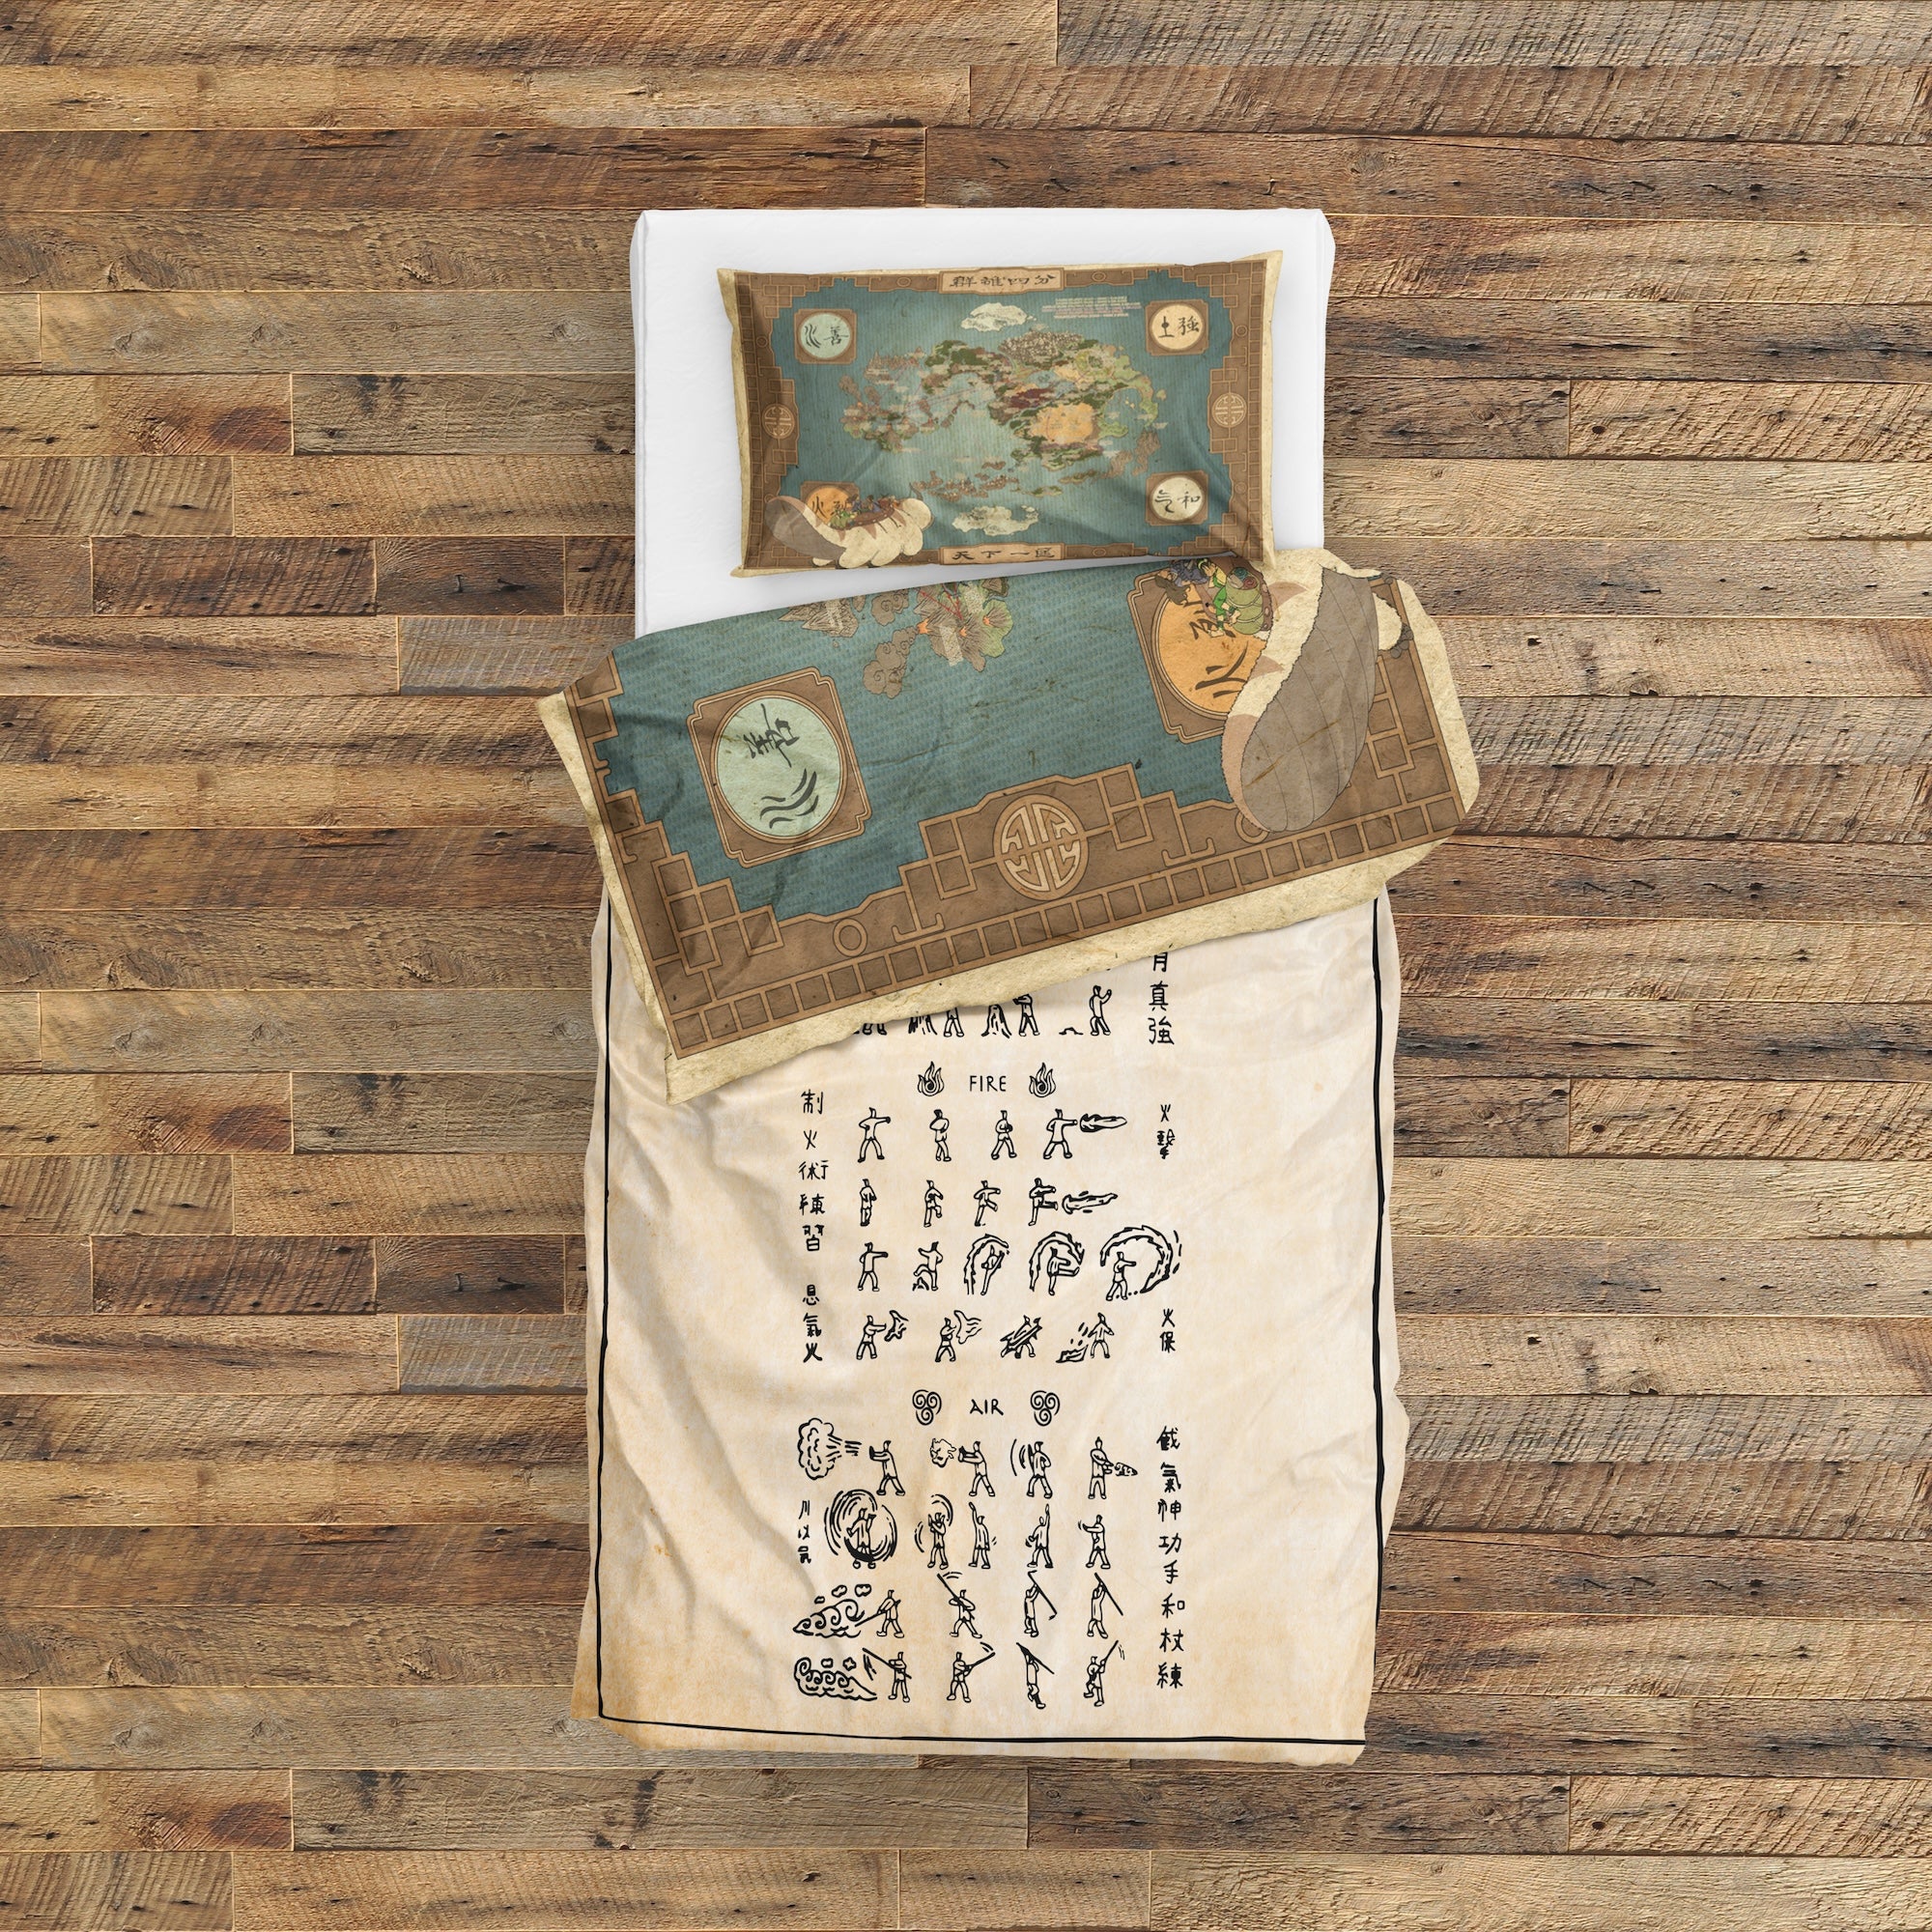 群雄四分
水善
土強
火烈
气和
天下一匡
善
水
火烈
真
強
FIRE
制火術練習
火擊
息氣火
火保
AIR
戲氣神功手和杖練